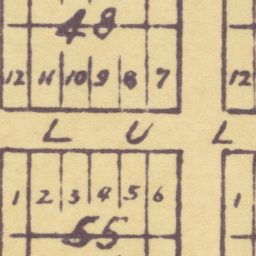 48
12 11 10 9 8 7 12
L U L
1 2 3 4 5 6 1
55